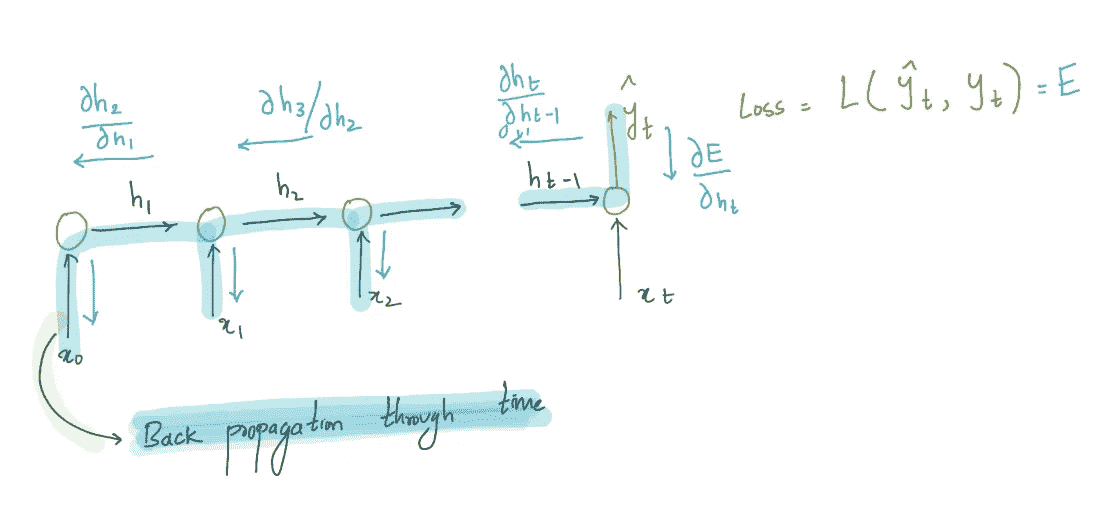 ∂h₂/∂h₁
∂h₃/∂h₂
∂hₜ/∂hₜ₋₁
ŷₜ
Loss = L(ŷₜ, yₜ) = E
∂E/∂hₜ
h₁
h₂
hₜ₋₁
x₀
x₁
x₂
xₜ
Back propagation through time